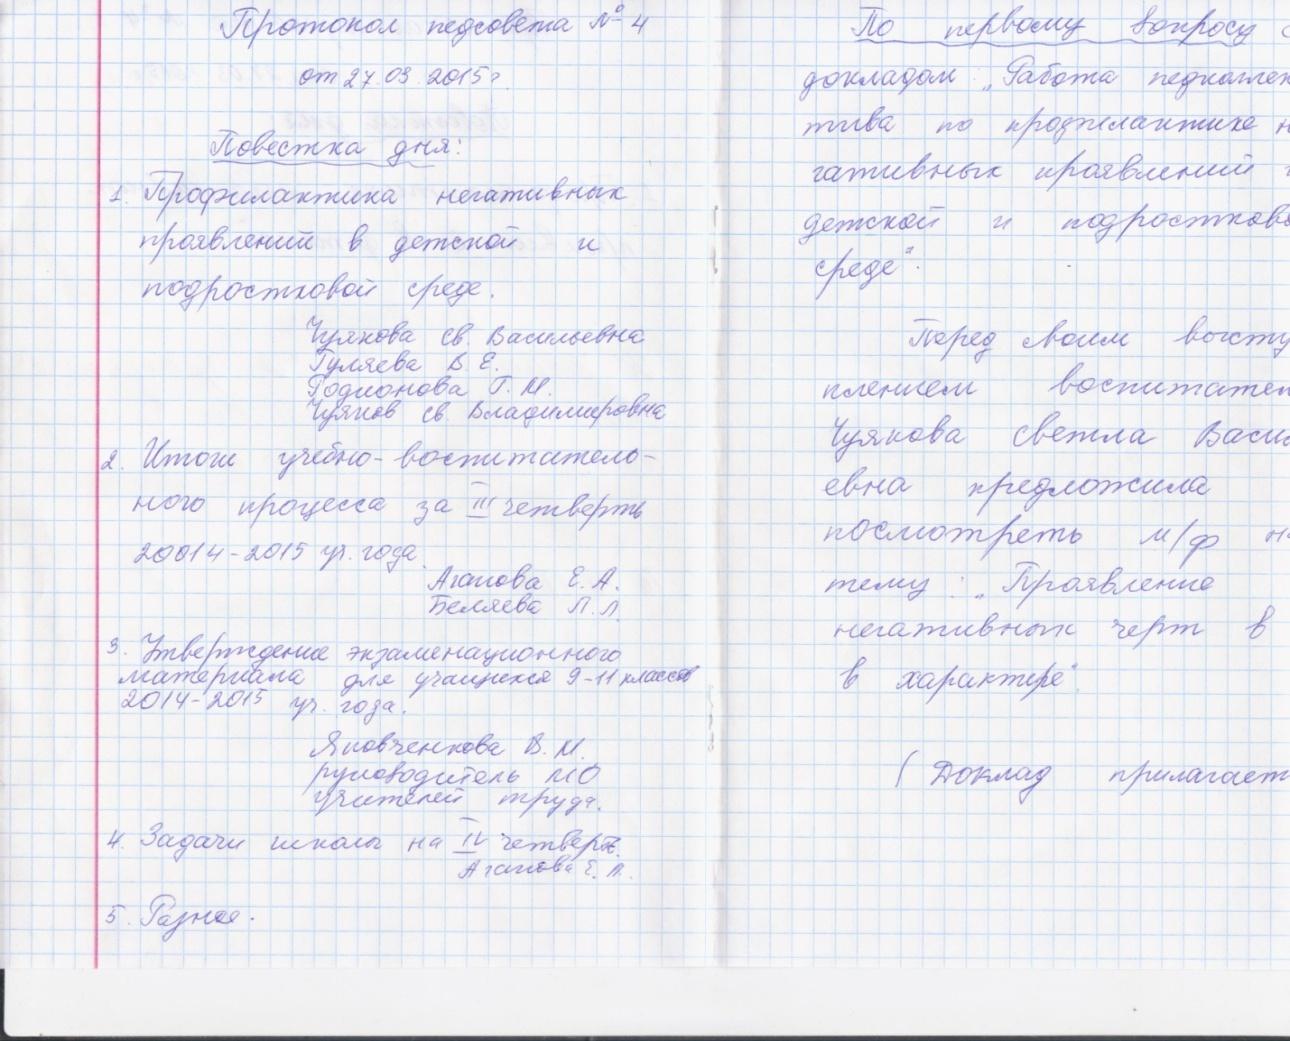 Протокол педсовета № 4
от 27.03.2015г
Повестка дня:
1. Профилактика негативных
проявлений в детской и
подростковой среде.
Чуякова Св. Васильевна
Гуляева В. Е.
Родионова Г. М.
Чуяков Св. Владимировна
2. Итоги учебно-воспитатель-
ного процесса за III четверть
20014-2015 уч. года.
Агапова Е. А.
Беляева Л. Л.
3. Утверждение экзаменационного
материала для учащихся 9-11 классов
2014-2015 уч. года.
Яковченкова В. М.
руководитель МО
учителей труда.
4. Задачи школы на IV четверть.
Агапова Е. А.
5. Разное.
По первому вопросу с
докладом: „Работа педколлек
тива по профилактике н
гативных проявлений
детской и подростково
среде".
Перед своим высту
плением воспитател
Чуякова Светла Васил
евна предложила
посмотреть м/ф н
тему: „Проявление
негативных черт в
в характере".
( Доклад прилагает